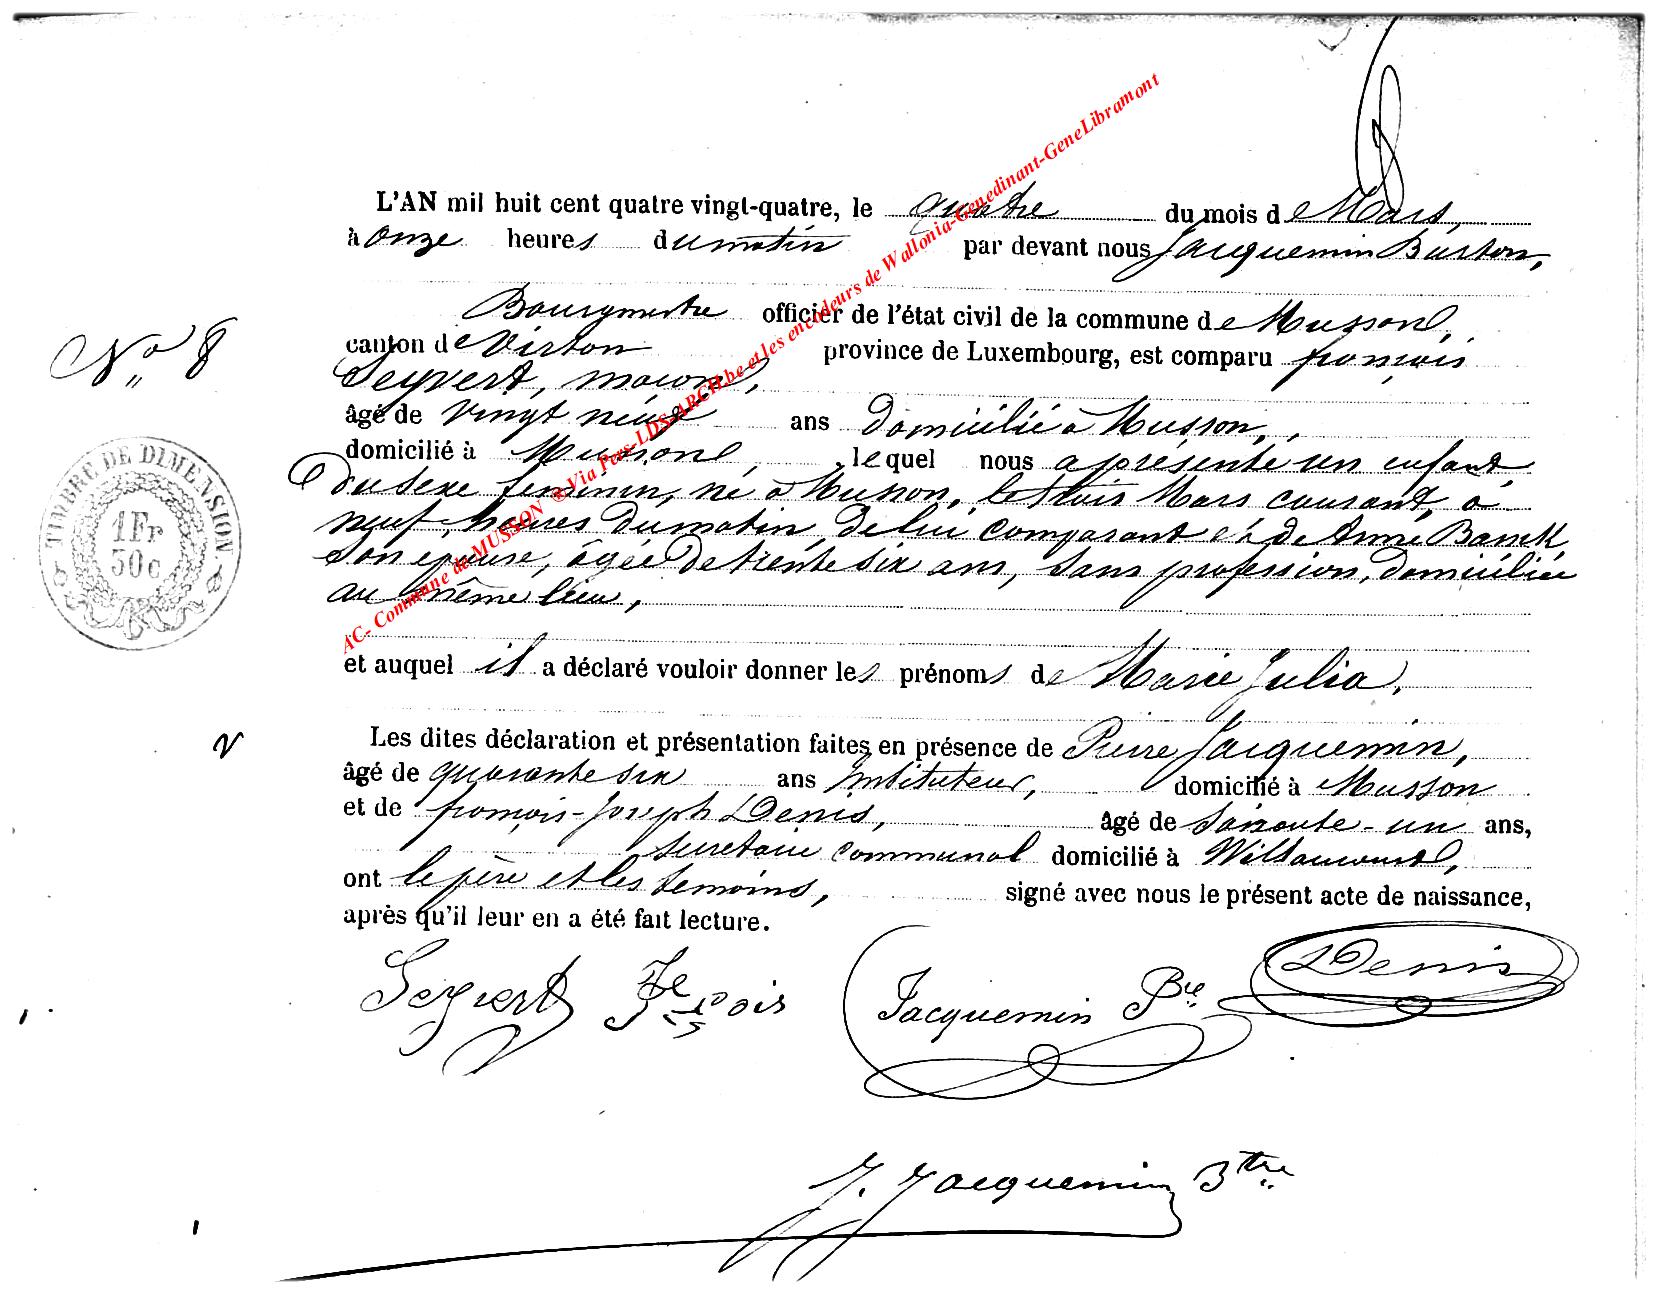 L'AN mil huit cent quatre vingt-quatre, le quatre du mois de Mars,
à onze heures du matin par devant nous Jacquemin Burton,
Bourgmestre officier de l'état civil de la commune de Musson,
canton de Virton province de Luxembourg, est comparu françois
Seyvert, maçon,
âgé de vingt neuf ans domicilié à Musson,
domicilié à Musson, lequel nous a présenté un enfant
du sexe feminin, né à Musson, le trois Mars courant, à
neuf heures du matin, de lui comparant & de Anne
son épouse, âgée de trente six ans, sans profession, domiciliée
au même lieu,
et auquel il a déclaré vouloir donner les prénoms de Marie Julia,
Les dites déclaration et présentation faites en présence de Pierre Jacquemin,
âgé de quarante six ans Instituteur, domicilié à Musson
et de françois-Joseph Denis, âgé de soixante-un ans,
secretaire communal domicilié à Willancourt,
ont le père et les temoins, signé avec nous le présent acte de naissance,
après qu'il leur en a été fait lecture.
No 8
TIMBRE DE DIMENSION
1 Fr
50 c
Seyvert
Jacquemin Pre
Denis
J. Jacquemin Btre
AC- Commune de MUSSON ® Via Pers-LDS-ARCH.be et les encodeurs de Wallonia-Genedinant-GeneLibramont